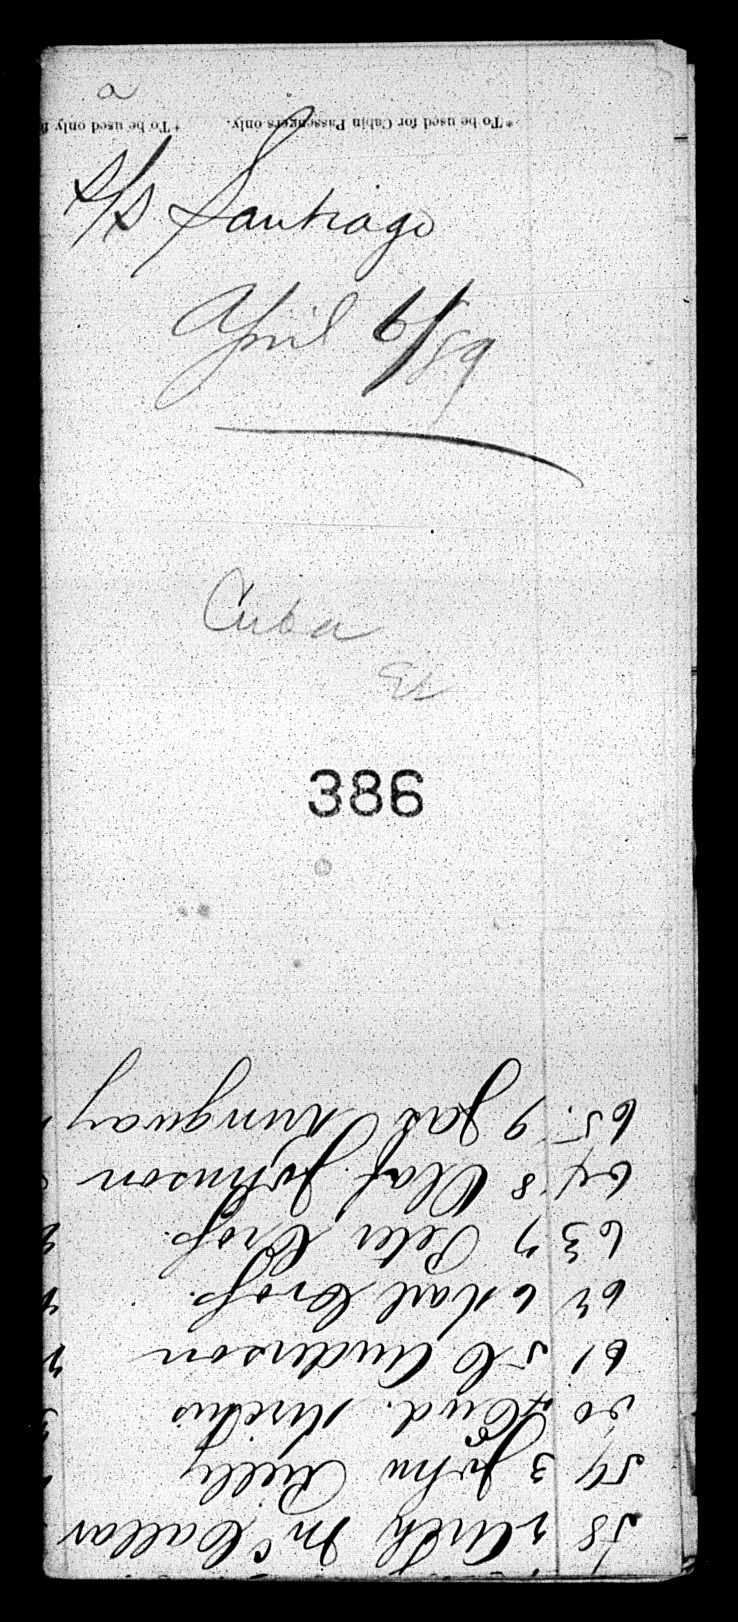 a
*To be used for Cabin Passengers only. †To be used only f
S/S Santiago
April 6/89
Cuba
386
58 2 Arch McCallar
59 3 John Reilly
60 4 Ferd.
61 5 C Anderson
62 6 Karl Crop.
63 7 Peter Crop.
64 8 Olaf Johnson
65. 9 Jas